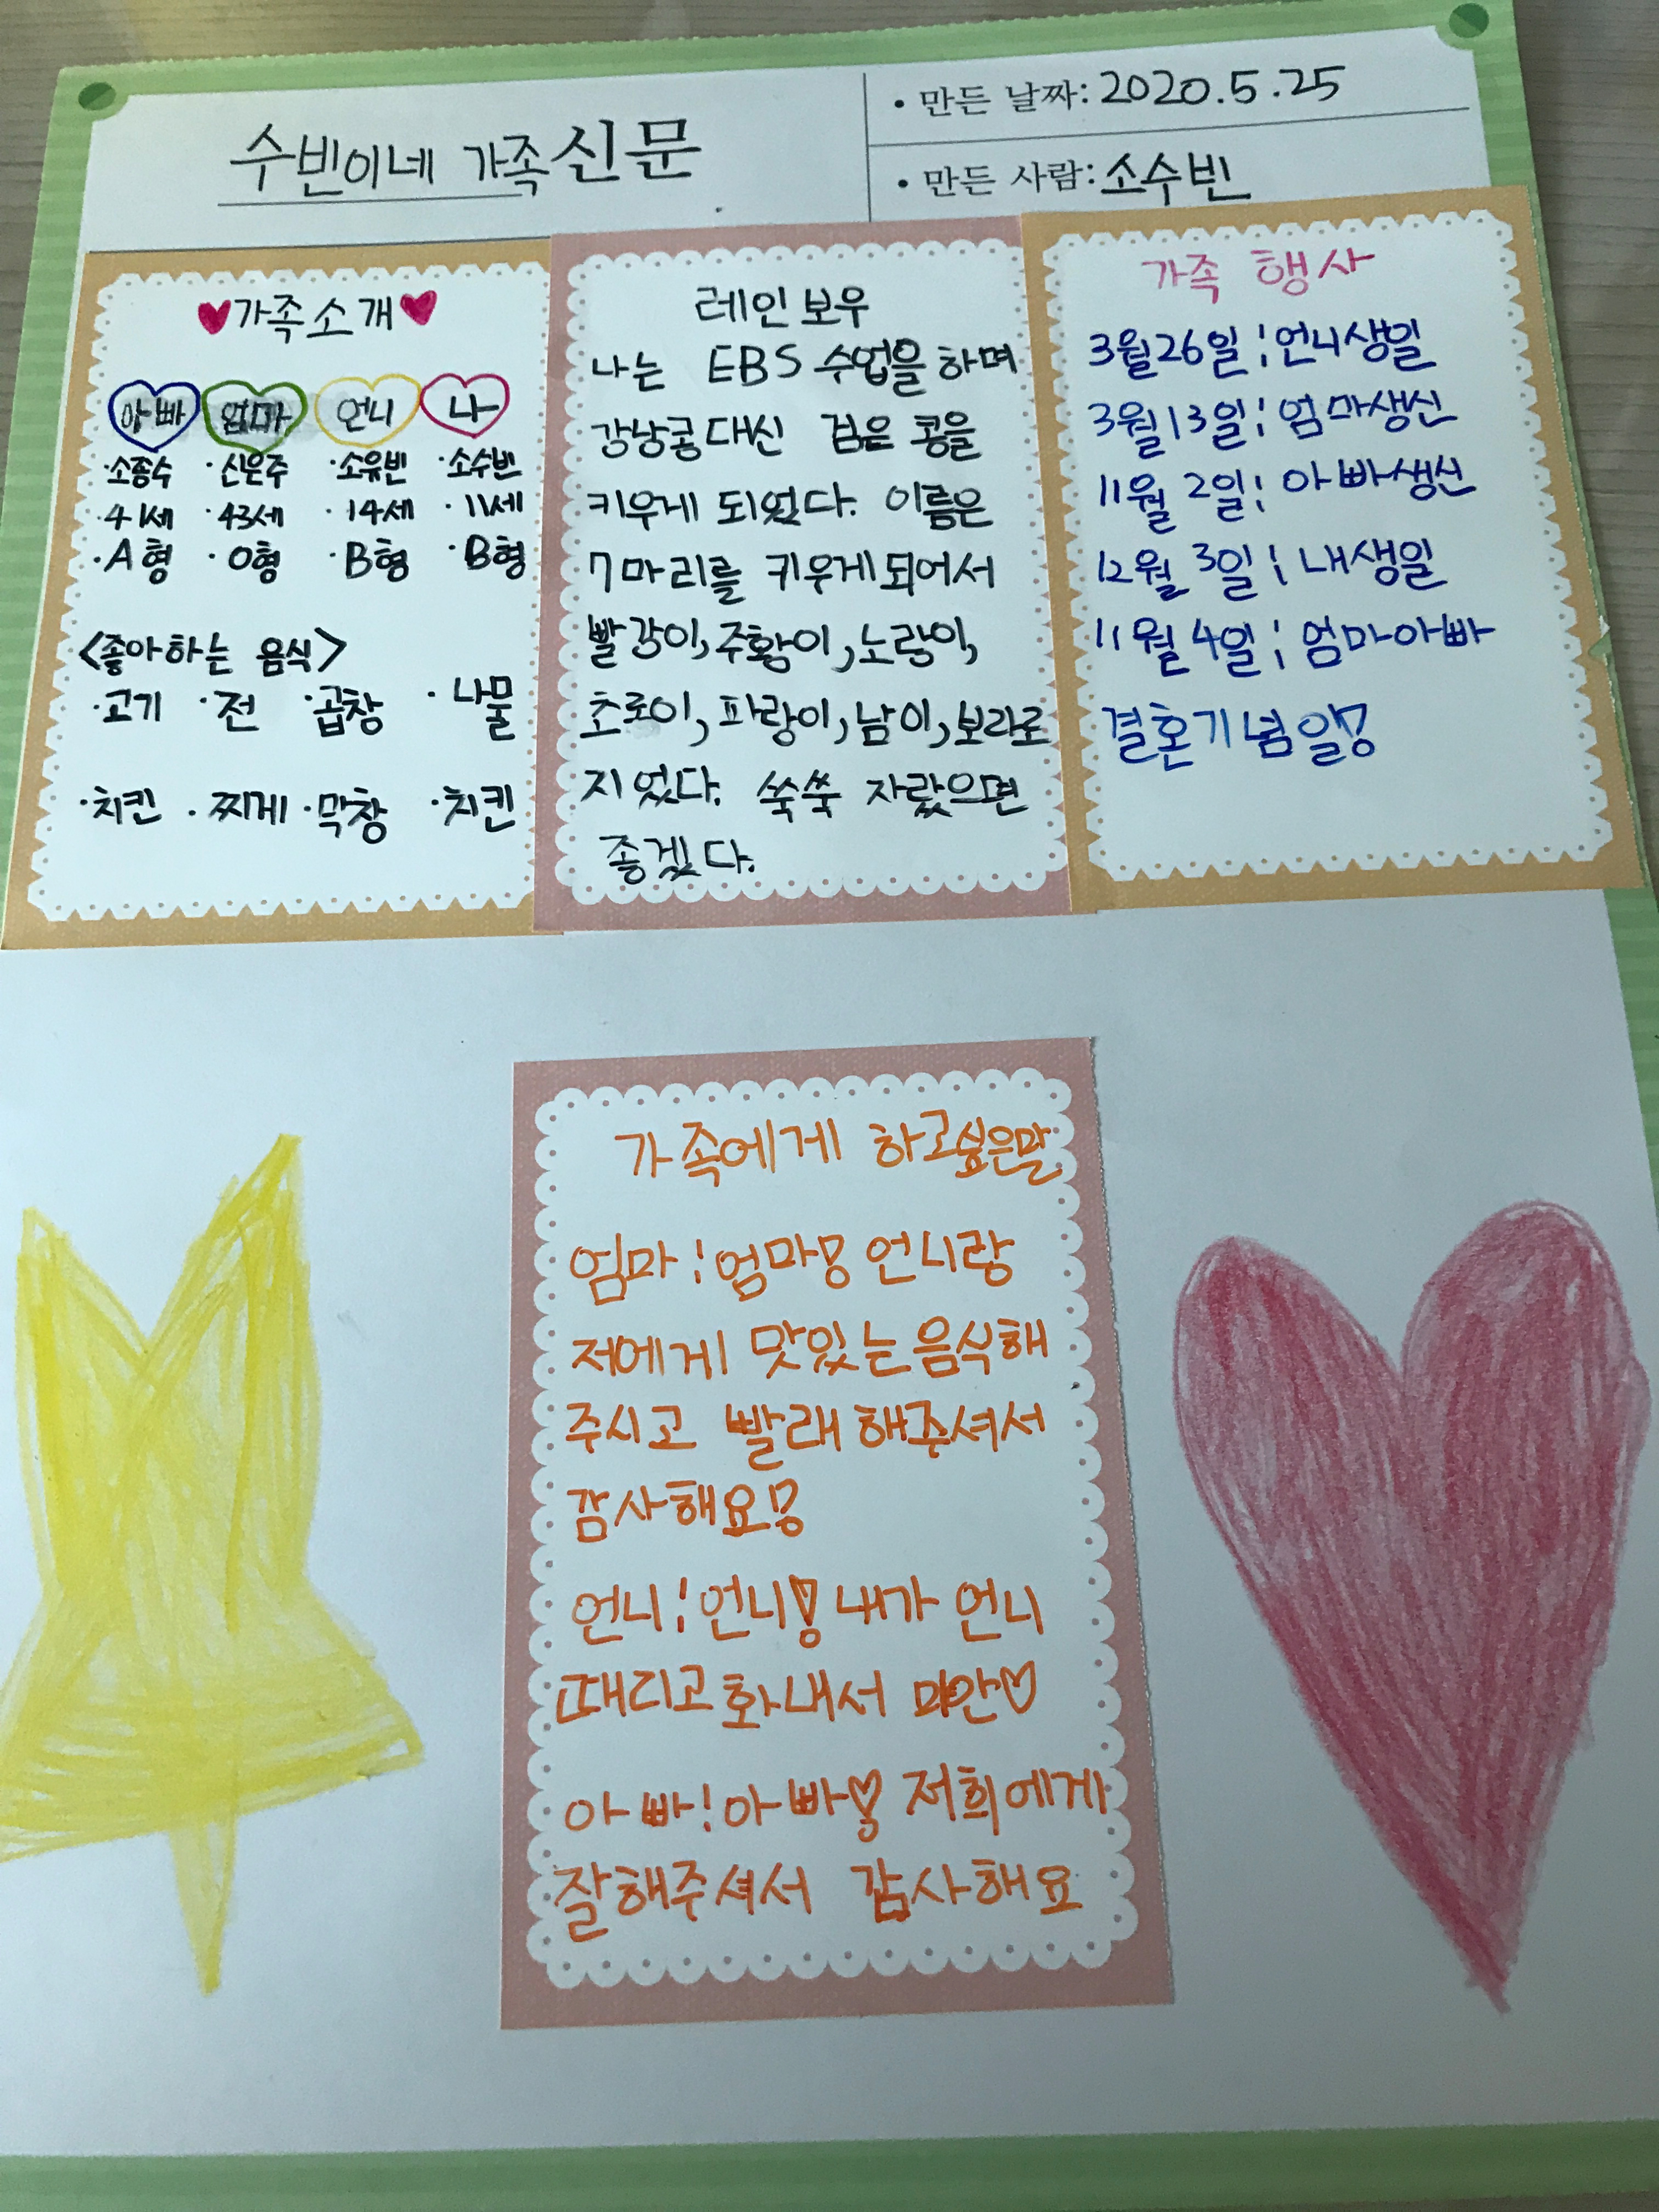 수빈이네 가족신문
• 만든 날짜: 2020.5.25
• 만든 사람: 소수빈
♥가족소개♥
아빠 엄마 언니 나
·소종수 ·신은주 ·소유빈 ·소수빈
·41세 ·43세 ·14세 ·11세
·A형 ·O형 ·B형 ·B형
<좋아하는 음식>
·고기 ·전 ·곱창 ·나물
·치킨 ·찌게 ·막창 ·치킨
레인보우
나는 EBS 수업을 하며
강낭콩대신 검은 콩을
키우게 되었다. 이름은
7마리를 키우게되어서
빨강이, 주황이, 노랑이,
초로이, 파랑이, 남이, 보라로
지었다. 쑥쑥 자랐으면
좋겠다.
가족 행사
3월26일 ; 언니생일
3월13일 ; 엄마생신
11월 2일 ; 아빠생신
12월 3일 ; 내생일
11월 4일 ; 엄마아빠
결혼기념일!
가족에게 하고싶은말
엄마 ; 엄마! 언니랑
저에게 맛있는음식해
주시고 빨래해주셔서
감사해요!
언니 ; 언니! 내가 언니
때리고 화내서 미안♡
아빠 ; 아빠! 저희에게
잘해주셔서 감사해요